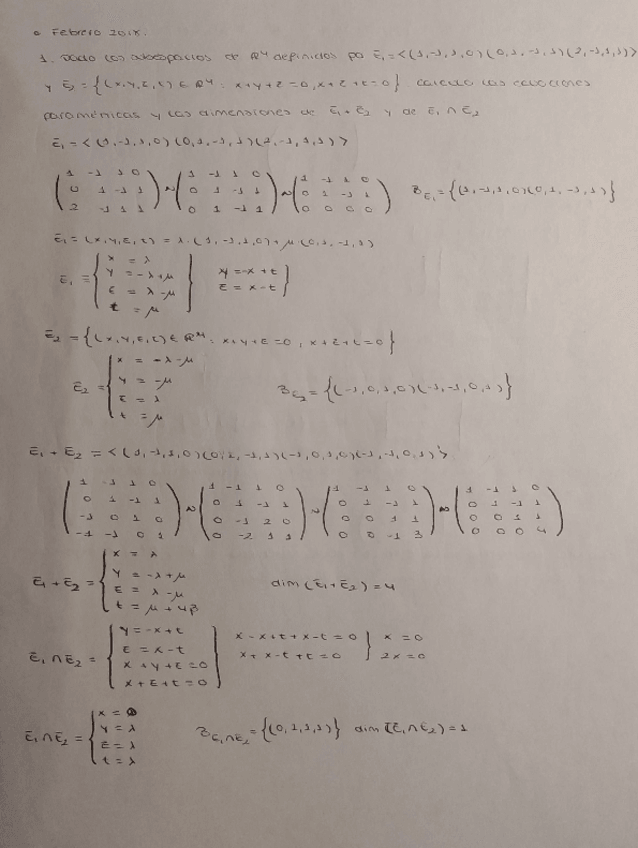 • Febrero 201x.
1. Dado los subespacios de R⁴ definidos po E̅₁=<(1,-1,1,0)(0,1,-1,1)(2,-1,1,1)>
y E̅₂={(x,y,z,t)∈R⁴: x+y+z=0, x+z+t=0} calcula las ecuaciones
paramétricas y las dimensiones de E̅₁+E̅₂ y de E̅₁∩E̅₂
E̅₁=<(1,-1,1,0)(0,1,-1,1)(2,-1,1,1)>
(1 -1 1 0 / 0 1 -1 1 / 2 -1 1 1) ~ (1 -1 1 0 / 0 1 -1 1 / 0 1 -1 1) ~ (1 -1 1 0 / 0 1 -1 1 / 0 0 0 0) B_E̅₁={(1,-1,1,0)(0,1,-1,1)}
E̅₁=(x,y,z,t)=λ·(1,-1,1,0)+μ(0,1,-1,1)
E̅₁={x = λ
y = -λ+μ y=-x+t
z = λ-μ z=x-t}
t = μ
E̅₂={(x,y,z,t)∈R⁴: x+y+z=0, x+z+t=0}
E̅₂={x = -λ-μ
y = -μ B_E̅₂={(-1,0,1,0)(-1,-1,0,1)}
z = λ
t = μ
E̅₁+E̅₂=<(1,-1,1,0)(0,1,-1,1)(-1,0,1,0)(-1,-1,0,1)>
(1 -1 1 0 / 0 1 -1 1 / -1 0 1 0 / -1 -1 0 1) ~ (1 -1 1 0 / 0 1 -1 1 / 0 -1 2 0 / 0 -2 1 1) ~ (1 -1 1 0 / 0 1 -1 1 / 0 0 1 1 / 0 0 -1 3) ~ (1 -1 1 0 / 0 1 -1 1 / 0 0 1 1 / 0 0 0 4)
E̅₁+E̅₂={x = λ
y = -λ+μ dim(E̅₁+E̅₂)=4
z = λ-μ
t = μ+4β
E̅₁∩E̅₂={y=-x+t
z=x-t x-x+t+x-t=0} x=0
x+y+z=0 x+x-t+t=0 2x=0
x+z+t=0}
E̅₁∩E̅₂={x = 0
y = λ B_E̅₁∩E̅₂={(0,1,1,1)} dim(E̅₁∩E̅₂)=1
z = λ
t = λ